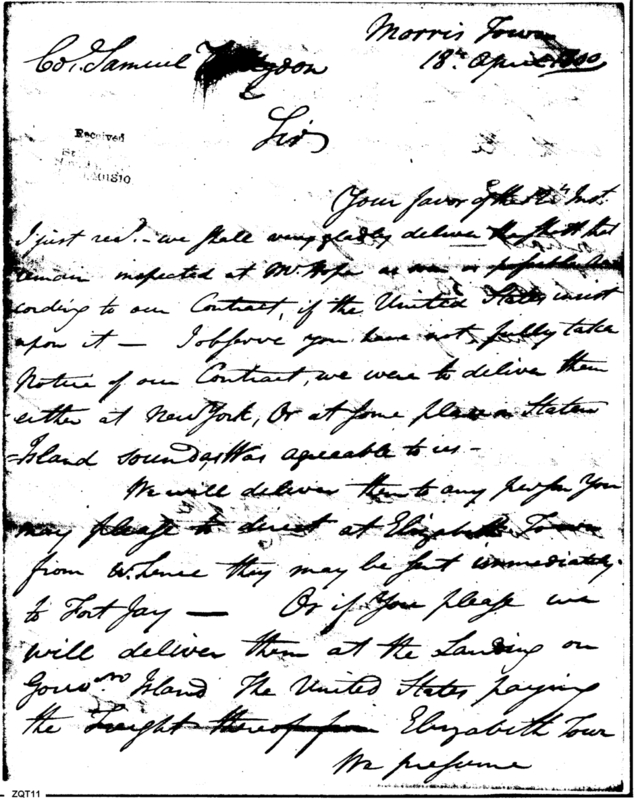 Morris Town
18th April 1800
Col. Samuel Hodgdon
Sir
Received
01810
Your favor of the Inst.
I just recd. - we shall very gladly deliver the shott that
remain inspected at Mt. Hope as soon as possible ac
cording to our Contract, if the United States insist
upon it — I observe you have not fully taken
Notice of our Contract, we were to deliver them
either at New York, Or at some place in Staten
=Island sound, as Was agreeable to us -
We will deliver them to any person You
may please to direct at Elizabeth Town
from whence they may be sent immediately
to Fort Jay — Or if You please we
will deliver them at the Landing on
Govrs. Island The United States paying
the Freight thereof from Elizabeth Town
We presume
ZQT11